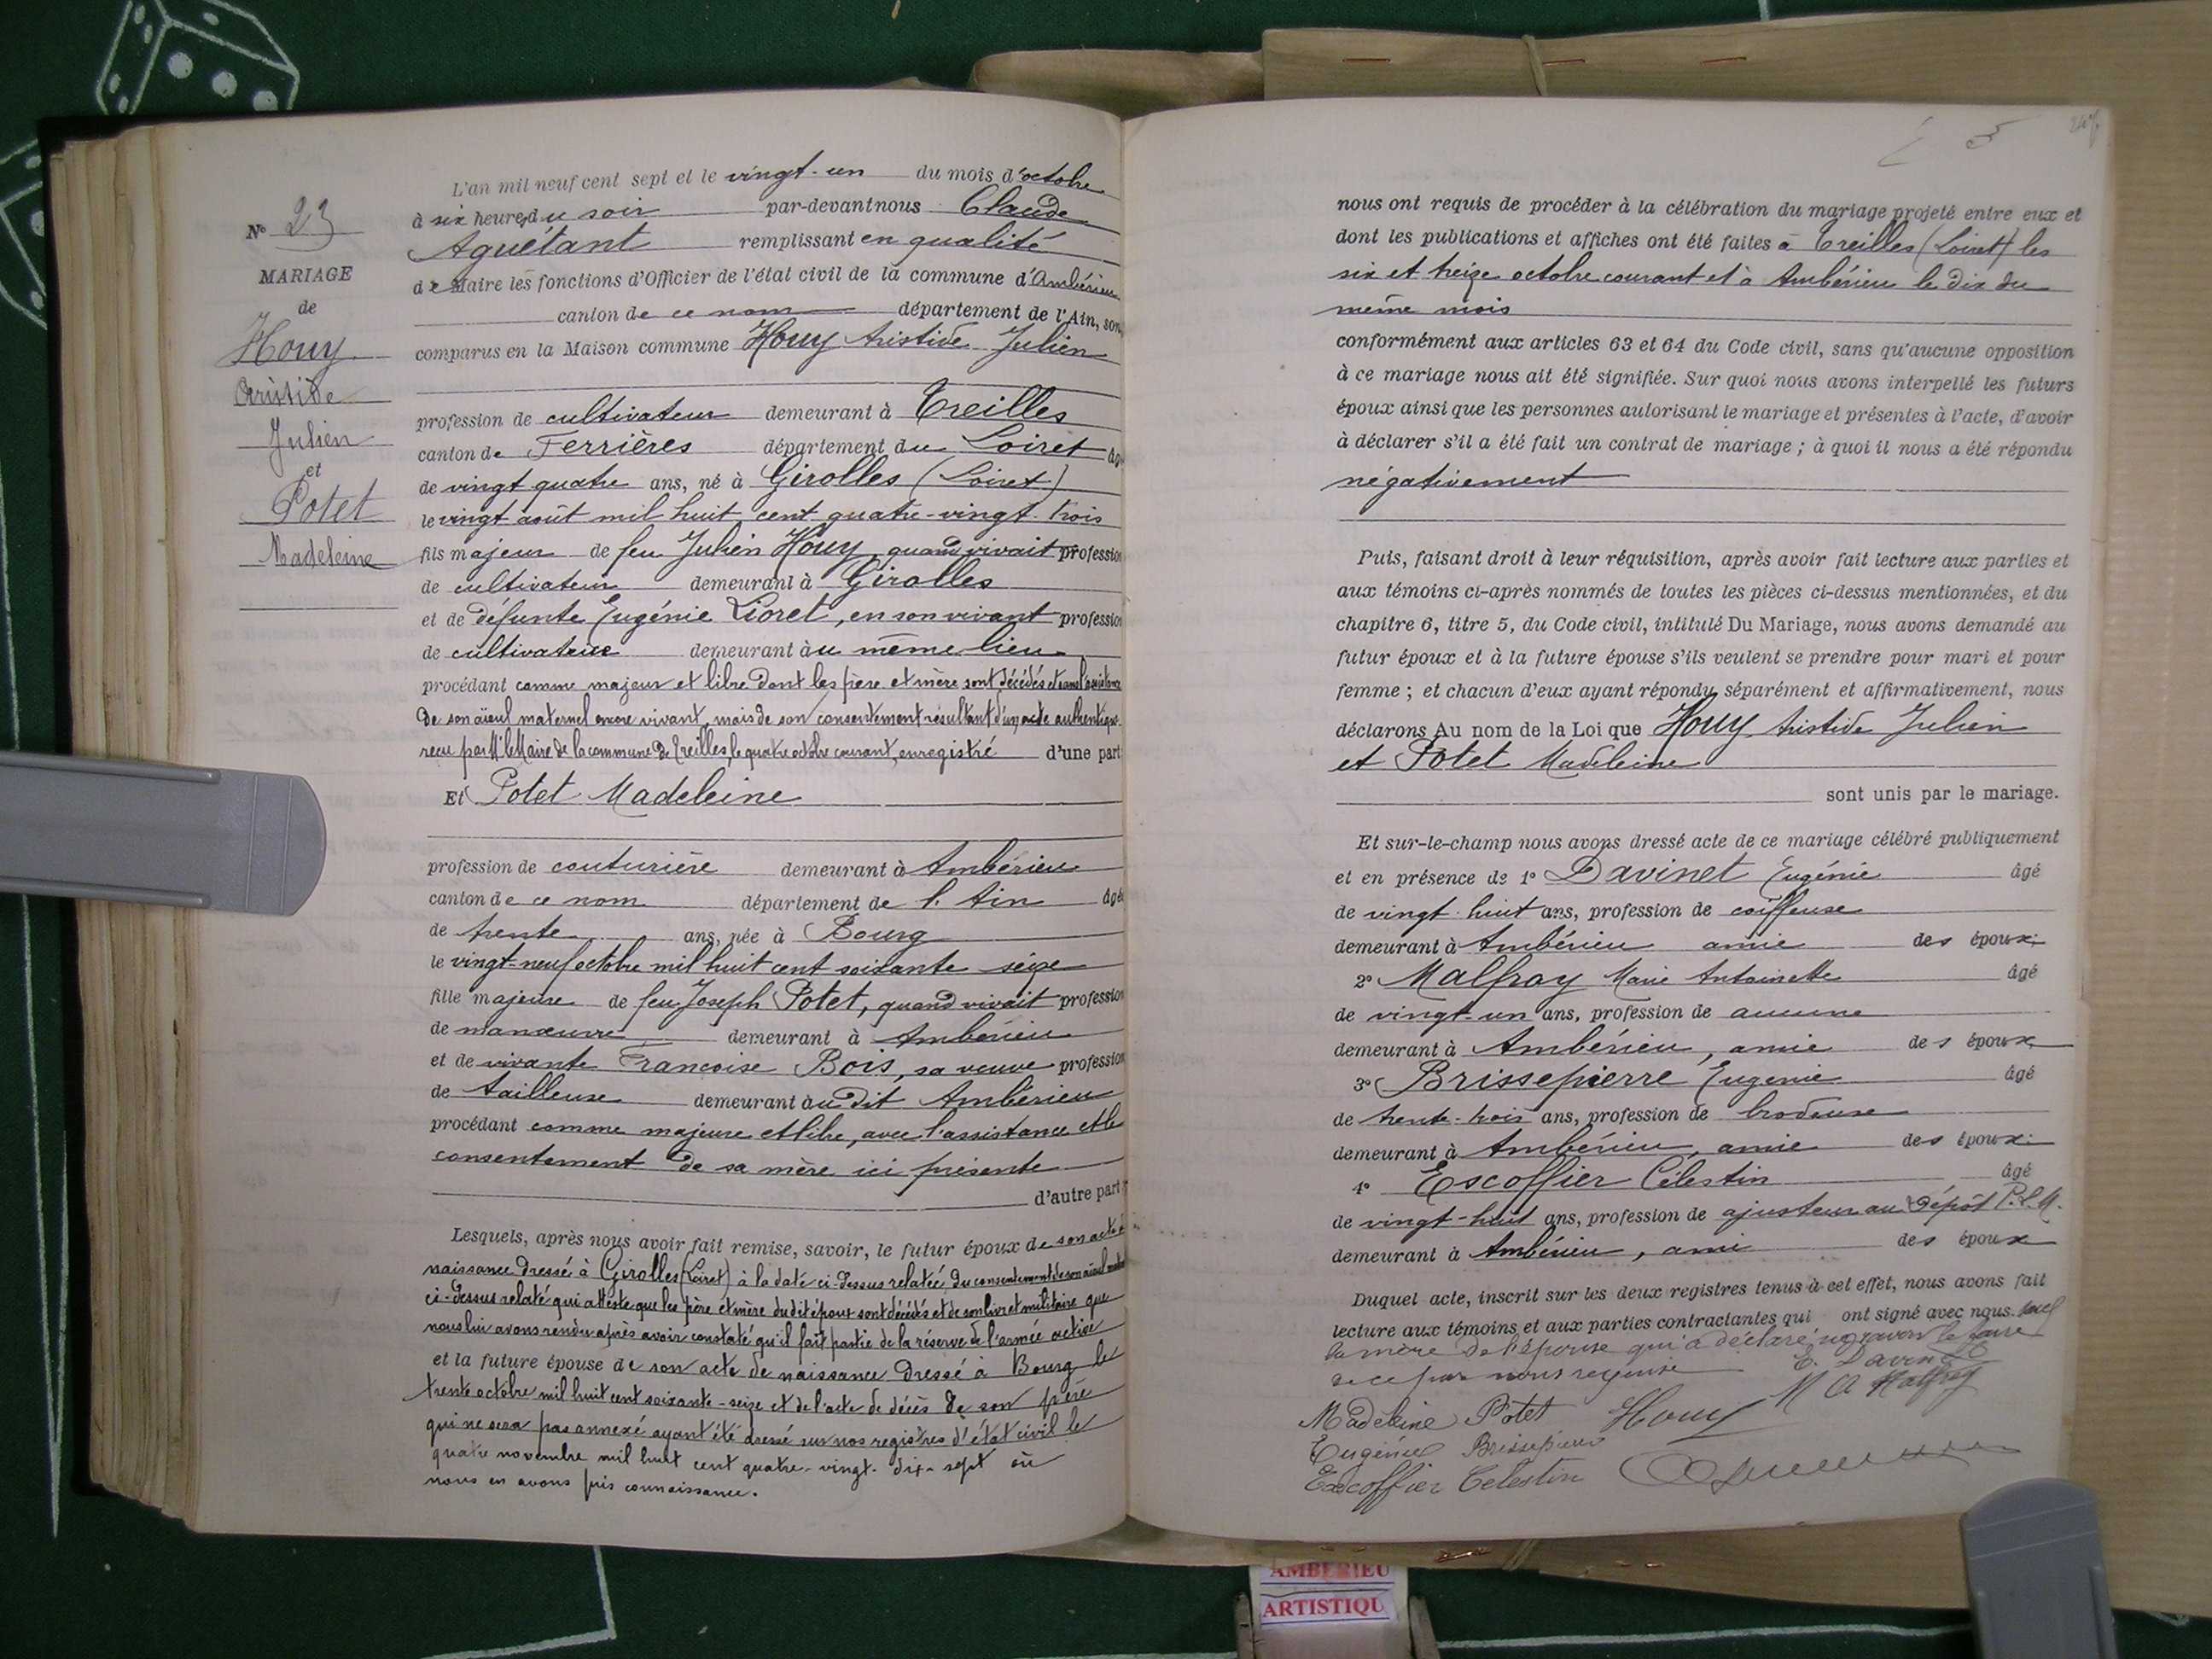 N° 23
MARIAGE
de
Houy
Aristide
Julien
et
Potet
Madeleine
L'an mil neuf cent sept et le vingt-un du mois d'octobre
à six heures du soir par-devant nous Claude
Aguétant remplissant en qualité
de Maire les fonctions d'Officier de l'état civil de la commune d'Ambérieu
canton de ce nom département de l'Ain, son
comparus en la Maison commune Houy Aristide Julien
profession de cultivateur demeurant à Treilles
canton de Ferrières département du Loiret âgé
de vingt quatre ans, né à Girolles (Loiret)
le vingt août mil huit cent quatre-vingt-trois
fils majeur de feu Julien Houy, quand vivait profession
de cultivateur demeurant à Girolles
et de défunte Eugénie Lioret, en son vivant profession
de cultivatrice demeurant au même lieu
procédant comme majeur et libre dont les père et mère sont décédés et sans l'assistance
de son aïeul maternel encore vivant, mais de son consentement résultant d'un acte authentique
reçu par M. le Maire de la commune de Treilles, le quatre octobre courant, enregistré d'une part
Et Potet Madeleine
profession de couturière demeurant à Ambérieu
canton de ce nom département de l'Ain âgée
de trente ans, née à Bourg
le vingt-neuf octobre mil huit cent soixante seize
fille majeure de feu Joseph Potet, quand vivait profession
de manœuvre demeurant à Ambérieu
et de vivante Françoise Bois, sa veuve profession
de tailleuse demeurant au dit Ambérieu
procédant comme majeure et libre, avec l'assistance et le
consentement de sa mère ici présente
d'autre part
Lesquels, après nous avoir fait remise, savoir, le futur époux de son acte de
naissance dressé à Girolles (Loiret) à la date ci-dessus relatée du consentement de son aïeul
ci-dessus relaté qui atteste que les père et mère du dit époux sont décédés et de son livret militaire que
nous lui avons rendu après avoir constaté qu'il fait partie de la réserve de l'armée active
et la future épouse de son acte de naissance dressé à Bourg le
trente octobre mil huit cent soixante-seize et de l'acte de décès de son père
qui ne sera pas annexé ayant été dressé sur nos registres d'état civil le
quatre novembre mil huit cent quatre-vingt-dix-sept où
nous en avons pris connaissance.
nous ont requis de procéder à la célébration du mariage projeté entre eux et
dont les publications et affiches ont été faites à Treilles (Loiret) les
six et treize octobre courant et à Ambérieu le dix du
même mois
conformément aux articles 63 et 64 du Code civil, sans qu'aucune opposition
à ce mariage nous ait été signifiée. Sur quoi nous avons interpellé les futurs
époux ainsi que les personnes autorisant le mariage et présentes à l'acte, d'avoir
à déclarer s'il a été fait un contrat de mariage ; à quoi il nous a été répondu
négativement
Puis, faisant droit à leur réquisition, après avoir fait lecture aux parties et
aux témoins ci-après nommés de toutes les pièces ci-dessus mentionnées, et du
chapitre 6, titre 5, du Code civil, intitulé Du Mariage, nous avons demandé au
futur époux et à la future épouse s'ils veulent se prendre pour mari et pour
femme ; et chacun d'eux ayant répondu séparément et affirmativement, nous
déclarons Au nom de la Loi que Houy Aristide Julien
et Potet Madeleine
sont unis par le mariage.
Et sur-le-champ nous avons dressé acte de ce mariage célébré publiquement
et en présence de 1° Davinet Eugénie âgé
de vingt-huit ans, profession de coiffeuse
demeurant à Ambérieu amie des époux
2° Malfroy Marie Antoinette âgé
de vingt-un ans, profession de aucune
demeurant à Ambérieu, amie des époux
3° Brissepierre Eugénie âgé
de trente-trois ans, profession de brodeuse
demeurant à Ambérieu, amie des époux
4° Escoffier Célestin âgé
de vingt-huit ans, profession de ajusteur au dépôt P.L.M.
demeurant à Ambérieu, ami des époux
Duquel acte, inscrit sur les deux registres tenus à cet effet, nous avons fait
lecture aux témoins et aux parties contractantes qui ont signé avec nous sauf
la mère de l'épouse qui a déclaré ne savoir le faire
de ce par nous requise E. Davinet
Madeleine Potet Houy M A Malfroy
Eugénie Brissepierre
Escoffier Celestin
AMBERIEU
ARTISTIQU